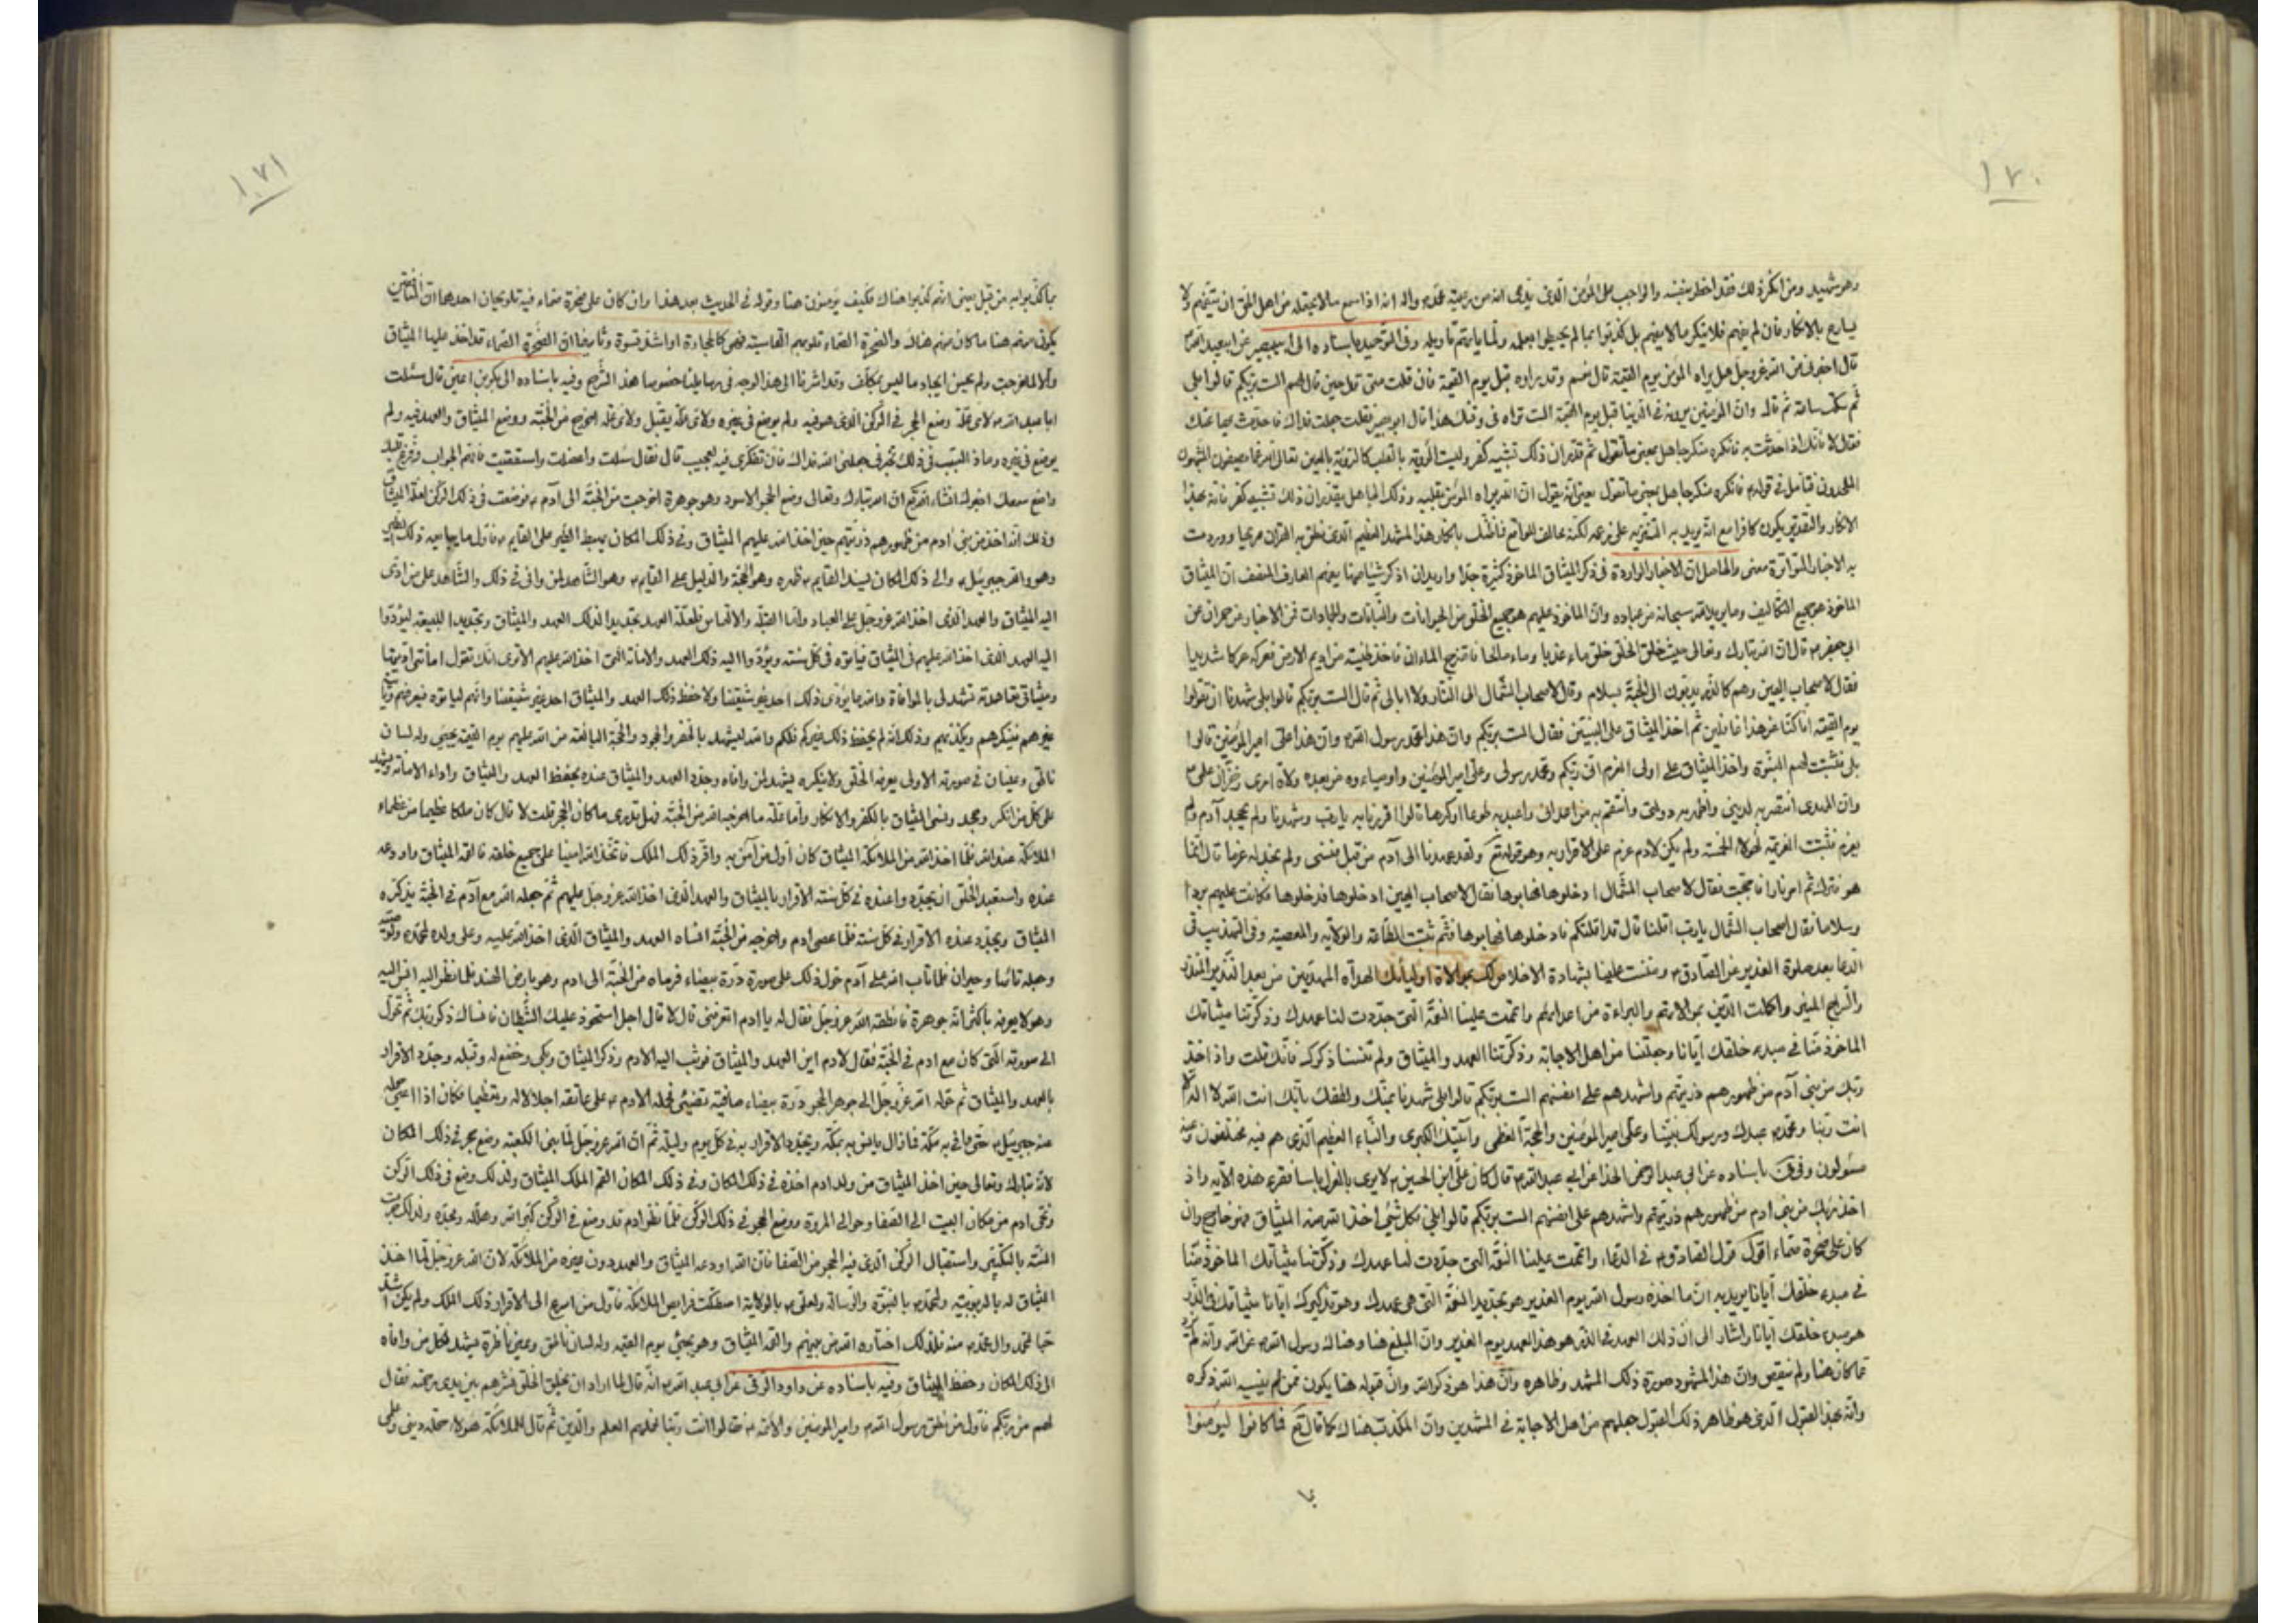 ١٧٠
وهو شهيد ومن انكر ذلك فقد اخطر بنفسه والواجب على المؤمن الذي يدعى انه من رعية محمد وآله انه اذا سمع ما لا يحتمله من اهل الحق ان يتفهم ولا
يسارع بالانكار فان لم يفهم فلا ينكر ما لا يفهم بل كذبوا بما لم يحيطوا بعلمه ولما ياتهم تاويله وفى التوحيد باسناده الى ابى بصير عن ابى عبد الله
قال اخبرنى عن الله عز وجل هل يراه المؤمن يوم القيمة قال نعم وقد يراوه قبل يوم القيمة فان قلت متى قال حين قال لهم الست بربكم قالوا بلى
ثم سكت ساعة ثم قال وان المؤمنين يرونه فى الدنيا قبل يوم القيمة الست تراه فى وقتك هذا قال ابو بصير فقلت جعلت فداك فاحدث بهذا عنك
فقال لا فانك اذا حدثت به فانكره منكر جاهل بمعنى ما تقول ثم قدر ان ذلك تشبيه كفر وليست الرؤية بالقلب كالرؤية بالعين تعالى الله عما يصفون المشبهون
الملحدون فتأمل فى قوله فانكره منكر جاهل بمعنى ما تقول يعنى انه يقول ان الله يراه المؤمن بقلبه وذلك الجاهل يقدر ان ذلك تشبيه كفر فانه بهذا
الانكار والتقدير يكون كافرا مع انه يريد به التنزيه على زعمه لكنه مخالف للواقع فما ظنك بانكار هذا المشهد العظيم الذى نطق به القران صريحا ووردت
به الاخبار المتواترة معنى والحاصل ان الاخبار الواردة فى ذكر الميثاق الماخوذ كثيرة جدا واريد ان اذكر شيئا منها يفهم العارف المنصف ان الميثاق
الماخوذ هو جميع التكاليف وما يريد الله سبحانه من عباده وان الماخوذ عليهم هو جميع الخلق من الحيوانات والنباتات والجمادات فمن الاخبار عن حمران عن
ابى جعفر قال ان الله تبارك وتعالى حيث خلق الخلق خلق ماء عذبا وماء مالحا فامتزج الماءان فاخذ طينته من اديم الارض فعركه عركا شديدا
فقال لاصحاب اليمين وهم كالذر يدبون الى الجنة بسلام وقال لاصحاب الشمال الى النار ولا ابالى ثم قال الست بربكم قالوا بلى شهدنا ان تقولوا
يوم القيمة انا كنا عن هذا غافلين ثم اخذ الميثاق على النبيين فقال الست بربكم وان هذا محمد رسول الله وان هذا على امير المؤمنين قالوا
بلى فثبتت لهم النبوة واخذ الميثاق على اولى العزم انى ربكم ومحمد رسولى وعلى امير المؤمنين واوصياءوه من بعده ولاة امرى وخزان علمى
وان المهدى انتصر به لدينى واظهر به دولتى وانتقم به من اعدائى واعبد به طوعا او كرها قالوا اقررنا به يا رب وشهدنا ولم يجحد آدم ولم
يقر فثبتت العزيمة لهؤلاء الخمسة ولم يكن لادم عزم على الاقرار به وهو قوله تع ولقد عهدنا الى آدم من قبل فنسى ولم نجد له عزما قال انما
هو فترك ثم امر نارا فاججت فقال لاصحاب الشمال ادخلوها فهابوها فقال لاصحاب اليمين ادخلوها فدخلوها فكانت عليهم بردا
وسلاما فقال اصحاب الشمال يا رب اقلنا قال قد اقلتكم فادخلوها فهابوها فثم ثبتت الطاعة والولاية والمعصية وفى التهذيب فى
الدعا بعد صلوة الغدير عن الصادق ومننت علينا بشهادة الاخلاص لك بموالاة اوليائك الهداة المهديين من بعد النذير المنذر
والسراج المنير واكملت الدين بموالاتهم والبراءة من اعدائهم واتممت علينا النعمة التى جددت لنا عهدك وذكرتنا ميثاقك
الماخوذ منا فى مبدء خلقك ايانا وجعلتنا من اهل الاجابة وذكرتنا العهد والميثاق ولم تنسنا ذكرك فانك قلت واذ اخذ
ربك من بنى آدم من ظهورهم ذريتهم واشهدهم على انفسهم الست بربكم قالوا بلى شهدنا بمنك ولطفك بانك انت الله لا اله الا
انت ربنا ومحمد عبدك ورسولك نبينا وعلى امير المؤمنين والحجة العظمى وآيتك الكبرى والنباء العظيم الذى هم فيه مختلفون وعنه
مسئولون وفى باسناده عن ابى عبد الرحمن الحذا عن ابى عبد الله قال كان على ابن الحسين لا يرى بالعزل باسا فقرء هذه الآيه واذ
اخذ ربك من بنى ادم من ظهورهم ذريتهم واشهدهم على انفسهم الست بربكم قالوا بلى فكل شئ اخذ الله منه الميثاق فهو خارج وان
كان على صخرة صماء اقول قول الصادق فى الدعاء واتممت علينا النعمة التى جددت لنا عهدك وذكرتنا ميثاقك الماخوذ منا
فى مبدء خلقك ايانا يريد به ان ما اخذه رسول الله يوم الغدير هو تجديد النعمة التى هى عهدك وهو تذكيرك ايانا ميثاقك فى الذر
هو مبدء خلقك ايانا واشار الى ان ذلك العهد فى الذر هو هذا العهد يوم الغدير وان المبلغ هنا وهناك رسول الله عن الله وانه لم يزد
عما كان هنا ولم ينقص وان هذا المشهود صورة ذلك المشهد وظاهره وان هذا هو ذكر الله وان قبوله هنا يكون ممن لم ينسيه الله ذكره
وانه بهذا القبول الذى هو ظاهر ذلك القبول جعلهم من اهل الاجابة فى المشهدين وان المكذب هناك كما قال تع فما كانوا ليؤمنوا
١٧١
بما كذبوا به من قبل يعنى انهم كذبوا هناك فكيف يؤمنون هنا وقوله فى الحديث بعد هذا وان كان على صخرة صماء فيه تلويحان احدهما ان المنافقين
يكون منهم هنا ما كان منهم هناك والصخرة الصماء قلوبهم القاسية فهى كالحجارة او اشد قسوة وثانيهما ان الصخرة الصماء قد اخذ عليها الميثاق
والا لما خرجت ولم يحسن ايجاد ما ليس بمكلف وقد اشرنا الى هذا الوجه فى رسايلنا خصوصا هذا الشرح وفيه باسناده الى بكير بن اعين قال سئلت
ابا عبد الله لاى علة وضع الحجر فى الركن الذى هو فيه ولم يوضع فى غيره ولاى علة يقبل ولاى علة اخرج من الجنة ووضع الميثاق والعهد فيه ولم
يوضع فى غيره وما ذا السبب فى ذلك تخبرنى جعلنى الله فداك فان تفكرى فيه لعجيب قال فقال سئلت واعضلت واستقصيت فافهم الجواب وفرغ قلبك
واصغ سمعك اخبرك انشاء الله تع ان الله تبارك وتعالى وضع الحجر الاسود وهو جوهرة اخرجت من الجنة الى آدم فوضعت فى ذلك الركن لعلة الميثاق
وذلك انه اخذ من بنى ادم من ظهورهم ذريتهم حين اخذ الله عليهم الميثاق وفى ذلك المكان يهبط الطير على القايم فاول ما يبايعه ذلك الطير
وهو والله جبرئيل والى ذلك المكان يسند القايم ظهره وهو الحجة والدليل على القايم وهو الشاهد لمن وافى فى ذلك والشاهد على من ادى
اليه الميثاق والعهد الذى اخذ الله عز وجل على العباد واما القبلة والالتماس فلعلة العهد تجديدا لذلك العهد والميثاق وتجديدا للبيعة ليؤدوا
اليه العهد الذى اخذ الله عليهم فى الميثاق فياتوه فى كل سنة ويؤدوا اليه ذلك العهد والامانة التى اخذ الله عليهم الا ترى انك تقول امانتى اديتها
وميثاقى تعاهدته لتشهد لى بالموافاة والله ما يؤدى ذلك احد غير شيعتنا ولا حفظ ذلك العهد والميثاق احد غير شيعتنا وانهم لياتوه فيعرفهم
غيرهم فينكرهم ويكذبهم وذلك انه لم يحفظ ذلك غيركم فلكم والله ليشهد بالخفر والجحود والحجة البالغة من الله عليهم يوم القيمة يجئ وله لسان
ناطق وعينان فى صورته الاولى يعرفه الخلق ولا ينكره يشهد لمن وافاه وجدد العهد والميثاق عنده بحفظ العهد والميثاق واداء الامانة ويشهد
على كل من انكر وجحد ونسى الميثاق بالكفر والانكار واما علة ما اخرجه الله من الجنة فهل تدرى ما كان الحجر قلت لا قال كان ملكا عظيما من عظماء
الملائكة عند الله فلما اخذ الله من الملائكة الميثاق كان اول من آمن به واقر ذلك الملك فاتخذه الله امينا على جميع خلقه فالقمه الميثاق واودعه
عنده واستعبد الخلق ان يجددوا عنده فى كل سنة الاقرار بالميثاق والعهد الذى اخذ الله عز وجل عليهم ثم جعله الله مع آدم فى الجنة يذكره
الميثاق ويجدد عنده الاقرار فى كل سنة فلما عصى ادم واخرجه من الجنة انساه العهد والميثاق الذى اخذ الله عليه وعلى ولده لمحمد ولوصيه
وجعله تائها وحيران فلما تاب الله على آدم حول ذلك على صورة درة بيضاء فرماه من الجنة الى ادم وهو بارض الهند فلما نظر اليه انس اليه
وهو لا يعرفه باكثر انه جوهرة فانطقه الله عز وجل فقال له يا ادم اتعرفنى قال لا قال اجل استحوذ عليك الشيطان فانساك ذكر ربك ثم تحول
الى صورته التى كان مع ادم فى الجنة فقال لادم اين العهد والميثاق فوثب اليه الادم وذكر الميثاق وبكى وخضع له وقبله وجدد الاقرار
بالعهد والميثاق ثم حوله الله عز وجل الى جوهر الحجر درة بيضاء صافية تضيئ فحمله الادم على عاتقه اجلالا له وتعظيما فكان اذا اعيى حمله
عنه جبرئيل حتى وافى به مكة فما زال يانس به بمكة ويجدد الاقرار به فى كل يوم وليلة ثم ان الله عز وجل لما بنى الكعبة وضع حجر فى ذلك المكان
لانه تبارك وتعالى حين اخذ الميثاق من ولد ادم اخذه فى ذلك المكان وفى ذلك المكان القم الملك الميثاق ولذلك وضع فى ذلك الركن
ونحى ادم من مكان البيت الى الصفا وحوا الى المروة ووضع الحجر فى ذلك الركن فلما نظر ادم قد وضع فى الركن كبر الله وهلله ومجده ولذلك جرت
السنة بالتكبير واستقبال الركن الذى فيه الحجر من الصفا فان الله اودعه الميثاق والعهد دون غيره من الملائكة لان الله عز وجل لما اخذ
الميثاق له بالربوبية ولمحمد بالنبوة والرسالة ولعلى بالولاية اصطكت فرايص الملائكة فاول من اسرع الى الاقرار ذلك الملك ولم يكن اشد
حبا لمحمد وال محمد منه فلذلك اختاره الله من بينهم والقمه الميثاق وهو يجئ يوم القيمة وله لسان ناطق وعين ناظرة يشهد لكل من وافاه
الى ذلك المكان وحفظ الميثاق وفيه باسناده عن داود الرقى عن ابى عبد الله انه قال لما اراد ان يخلق الخلق نثرهم بين يديه فقال
لهم من ربكم فاول من نطق رسول الله وامير المؤمنين والائمة فقالوا انت ربنا فحملهم العلم والدين ثم قال للملائكة هؤلاء حملة دينى وعلمى